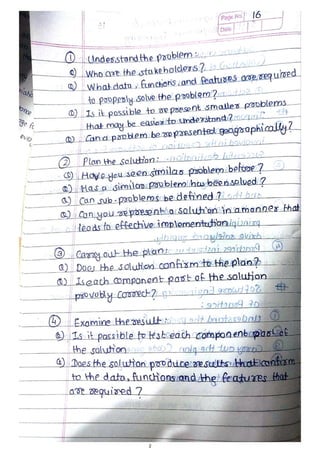 Page No. 16
Date
① Understand the problem:
Q) Who are the stakeholders?
Q) What data, functions, and features are required
to properly solve the problem?
Q) Is it possible to represent smaller problems
that may be easier to understand?
Q) Can a problem be represented geographically?
② Plan the solution:
Q) Have you seen similar problem before?
Q) Has a similar problem has been solved?
Q) Can sub-problems be defined?
Q) Can you represent a solution in a manner that
leads to effective implementation
③ Carry out the plan:
Q) Does the solution confirm to the plan?
Q) Is each component part of the solution
provably correct?
④ Examine the result:
Q) Is it possible to test each component part of
the solution
Q) Does the solution produce results that confirm
to the data, functions and the features that
are required?
2